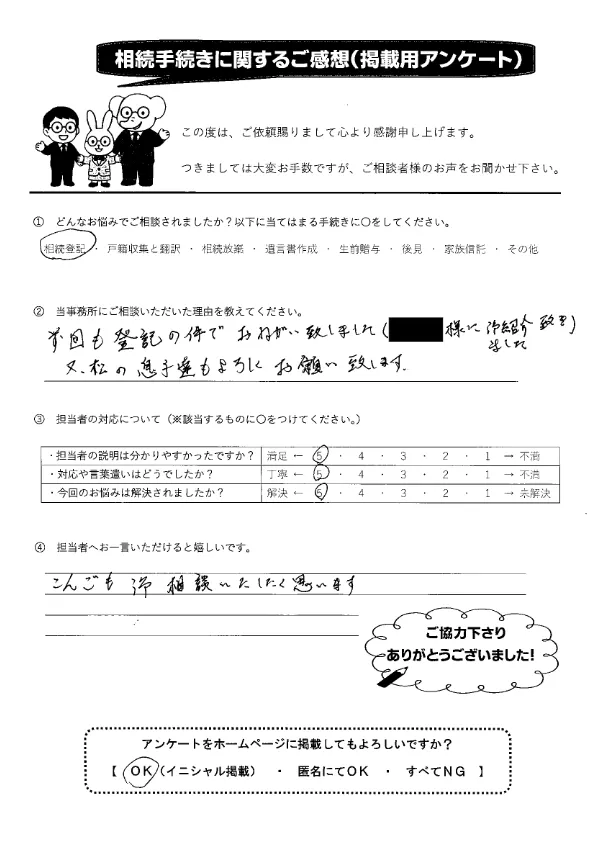 相続手続きに関するご感想(掲載用アンケート)
この度は、ご依頼賜りまして心より感謝申し上げます。
つきましては大変お手数ですが、ご相談者様のお声をお聞かせ下さい。
① どんなお悩みでご相談されましたか？以下に当てはまる手続きに〇をしてください。
相続登記 ・ 戸籍収集と翻訳 ・ 相続放棄 ・ 遺言書作成 ・ 生前贈与 ・ 後見 ・ 家族信託 ・ その他
② 当事務所にご相談いただいた理由を教えてください。
前回も登記の件でおねがい致しました(様に御紹介致し)
ました
又、松の息子達もよろしくお願い致します.
③ 担当者の対応について（※該当するものに〇をつけてください。）
・担当者の説明は分かりやすかったですか？ 満足 ← 5 ・ 4 ・ 3 ・ 2 ・ 1 → 不満
・対応や言葉遣いはどうでしたか？ 丁寧 ← 5 ・ 4 ・ 3 ・ 2 ・ 1 → 不満
・今回のお悩みは解決されましたか？ 解決 ← 5 ・ 4 ・ 3 ・ 2 ・ 1 → 未解決
④ 担当者へお一言いただけると嬉しいです。
こんごも御相談いたしたく思います
ご協力下さり
ありがとうございました!
アンケートをホームページに掲載してもよろしいですか？
【 OK(イニシャル掲載) ・ 匿名にてOK ・ すべてNG 】